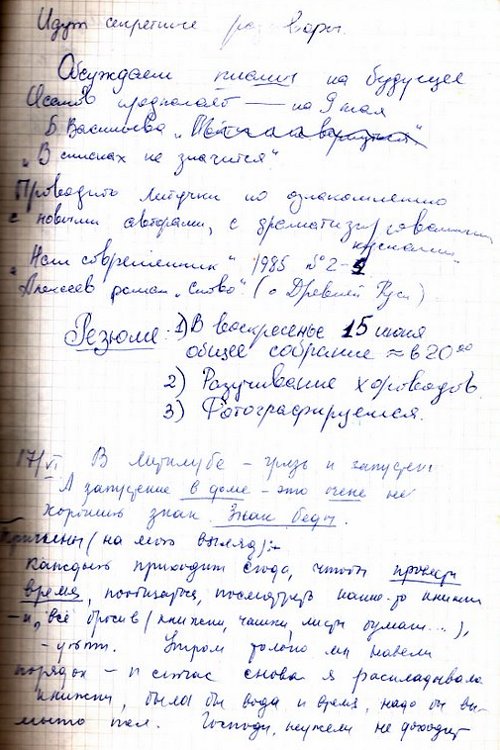 Идут секретные разговоры.
Обсуждаем планы на будущее
Осанов предлагает — на 9 мая
Б. Васильева „
„В списках не значится“
Проводить летучки по ознакомлению
с новыми авторами, с драматизированными
кусками.
„Наш современник“ 1985 № 2-
Алексеев роман „Слово“ (о Древней Руси)
Резюме: 1) В воскресенье 15 июня
общее собрание ≈ в 20⁰⁰
2) Разучивание хороводов
3) Фотографируемся.
17/VI В Литклубе – грязь и запустен
А запустение в доме – это очень не
хороший знак. Знак беды.
Причины (на мой взгляд):
каждый приходит сюда, чтобы
время, пообщаться, посмотреть какие-то книжки
– и, всё бросив (книжки, чашки, листы бумаги...),
– уйти. Утром только мы навели
порядок – и сейчас снова я раскладывала
книжки, была бы вода и время, надо бы вы-
мыть пол. Господи, неужели не доходит